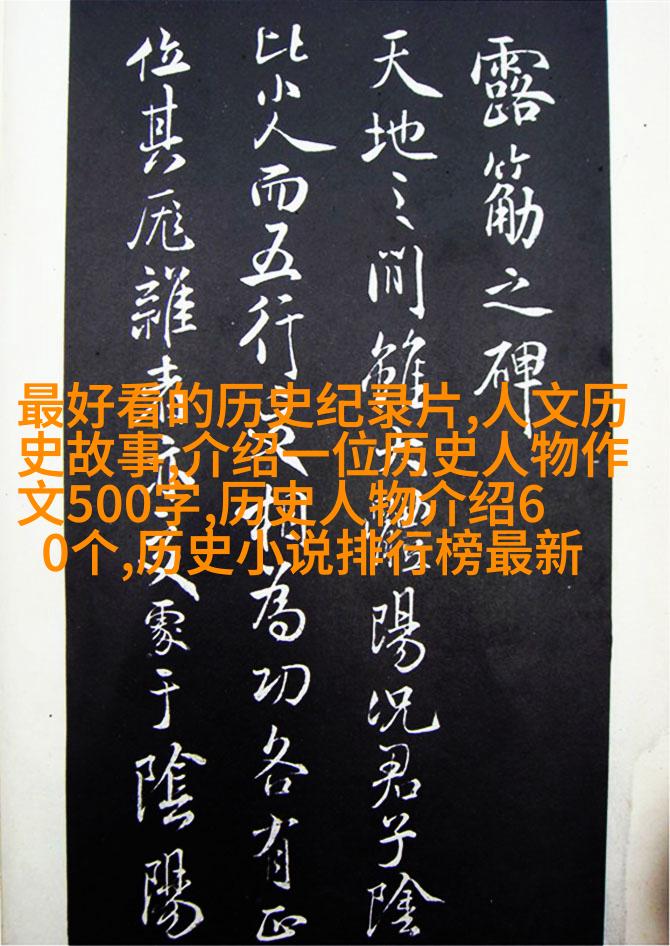 露筋之碑
天地之間雖陽况君子陰
比小人而五行相為功各有正
位其厖雜于陰陽
最好看的历史纪录片,人文历
史故事,介绍一位历史人物作
文500字,历史人物介绍6
0个,历史小说排行榜最新